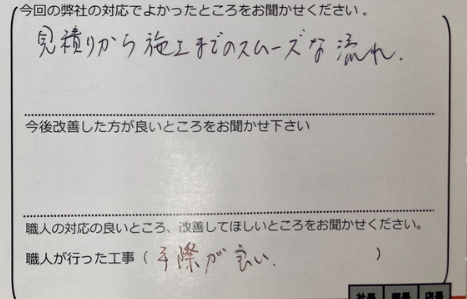 今回の弊社の対応でよかったところをお聞かせください。
見積りから施工までのスムーズな流れ.
今後改善した方が良いところをお聞かせ下さい
職人の対応の良いところ、改善してほしいところをお聞かせください。
職人が行った工事（手際が良い.）
社長 部長 店長